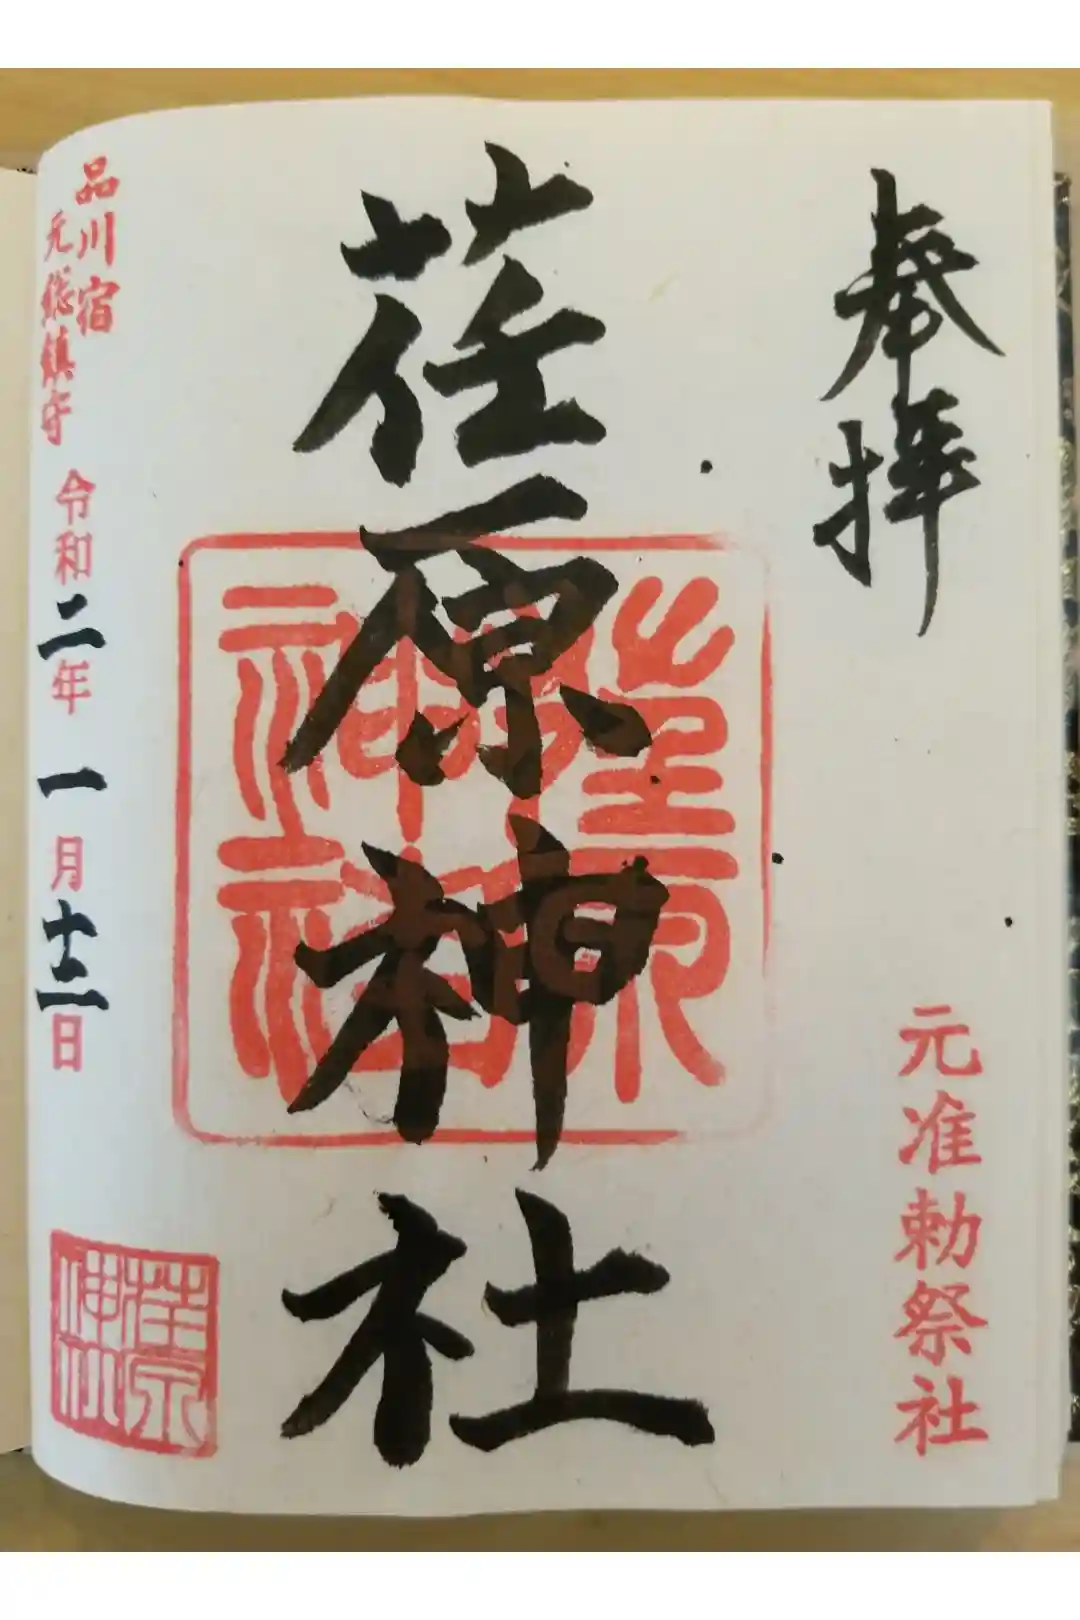 奉拝
元准勅祭社
荏原神社
荏原神社
品川宿
元総鎮守
令和二年一月十二日
荏原神社